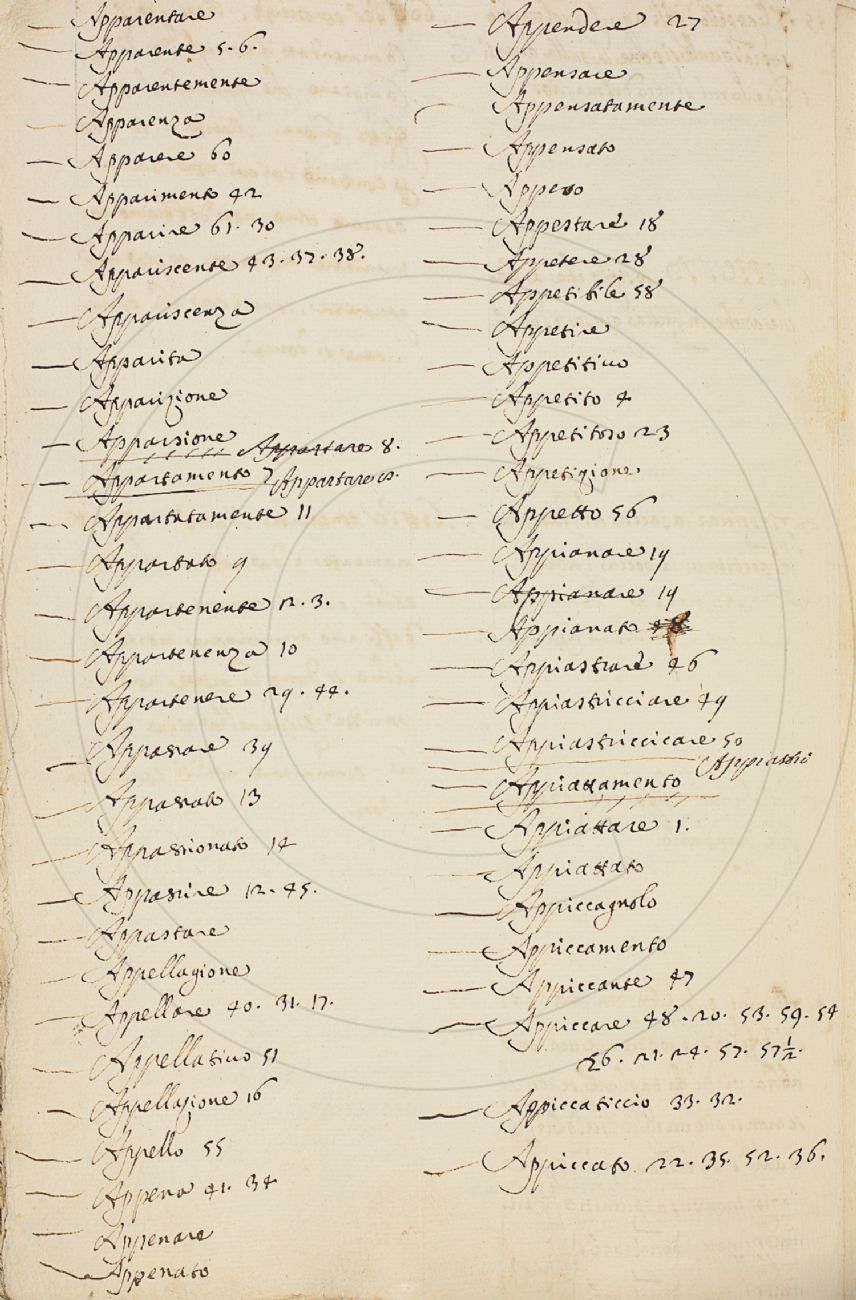 Apparentare
Apparente 5. 6.
Apparentemente
Apparenza
Apparere 60
Apparimento 42
Apparire 61. 30
Appariscente 43. 37. 38.
Appariscenza
Apparita
Apparizione
Apparsione Appartare 8.
Appartamento Appartare
Appartatamente 11
Appartato 9
Appartenente 12. 3.
Appartenenza 10
Appartenere 29. 44.
Appassare 39
Appassato 13
Appassionato 14
Appassire 12. 45.
Appastare
Appellagione
Appellare 40. 31. 17.
Appellativo 51
Appellazione 16
Appello 55
Appena 41. 34
Appenare
Appenato
Appendere 27
Appensare
Appensatamente
Appensato
Appeso
Appestare 18
Appetere 28
Appetibile 58
Appetire
Appetitivo
Appetito 4
Appetitoso 23
Appetizione
Appetto 56
Appianare 19
Appianare 19
Appianato
Appiastrare 46
Appiastricciare 49
Appiastriccicare 50
Appiastri
Appiattamento
Appiattare 1.
Appiattato
Appiccagnolo
Appiccamento
Appiccante 47
Appiccare 48. 20. 53. 59. 54
26. 21. 24. 57. 57½.
Appiccaticcio 33. 32.
Appiccato 22. 35. 52. 36.